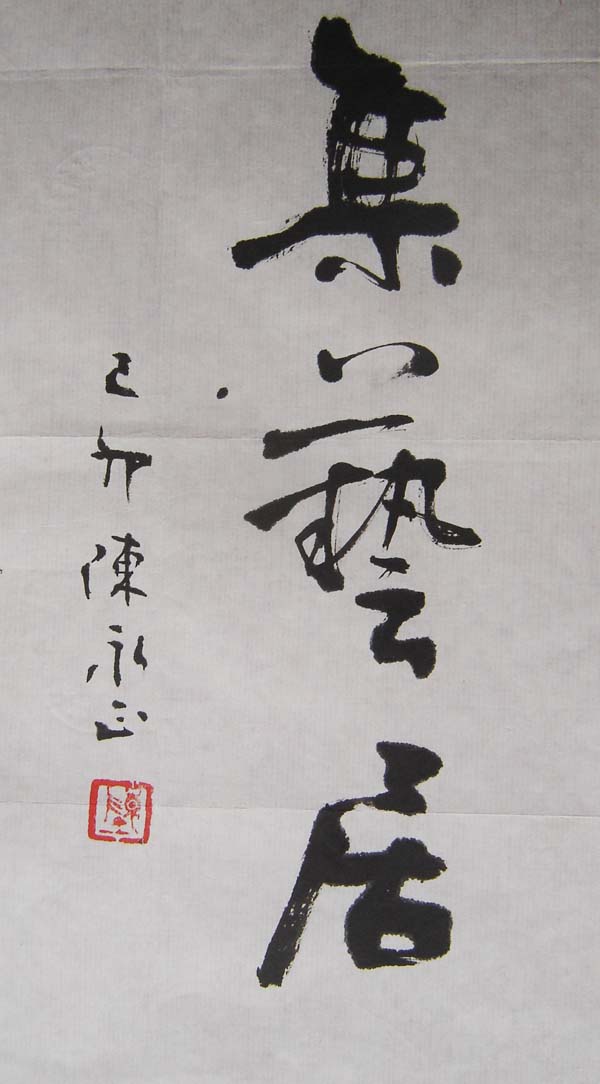 集藝居
己卯陳永正